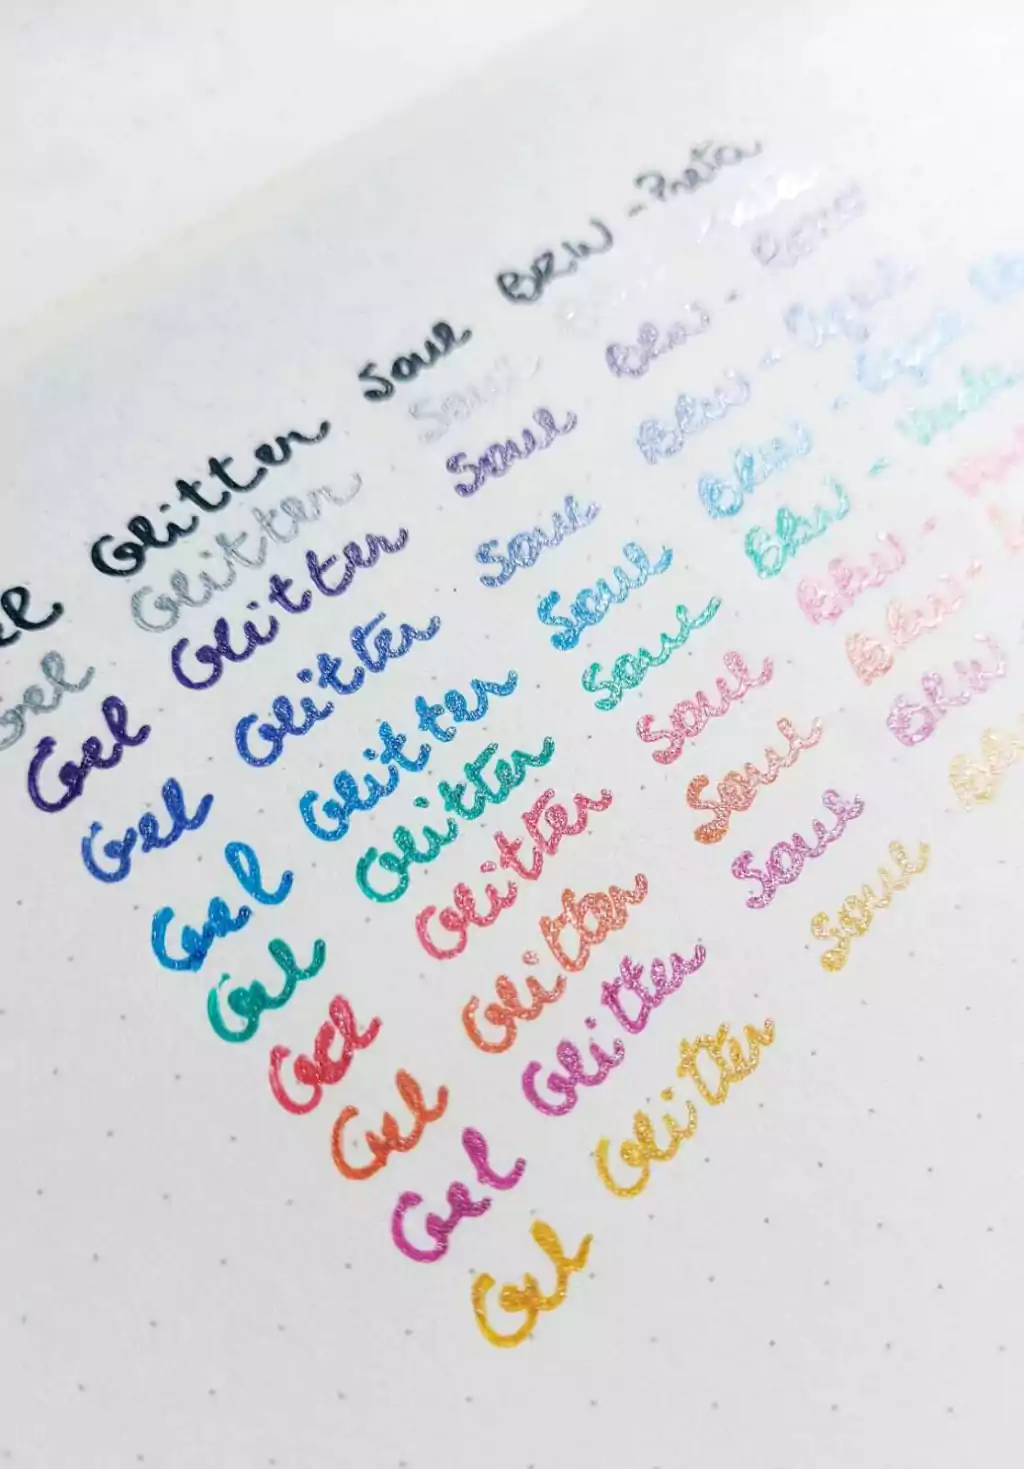 Glitter Soul BRW - Preta
Gel Glitter Soul
Gel Glitter Soul Brw - Roxo
Gel Glitter Soul Brw -
Gel Glitter Soul Brw -
Gel Glitter Soul Brw - Verde
Gel Glitter Soul Brw -
Gel Glitter Soul Brw -
Gel Glitter Soul Brw
Gel Glitter Soul